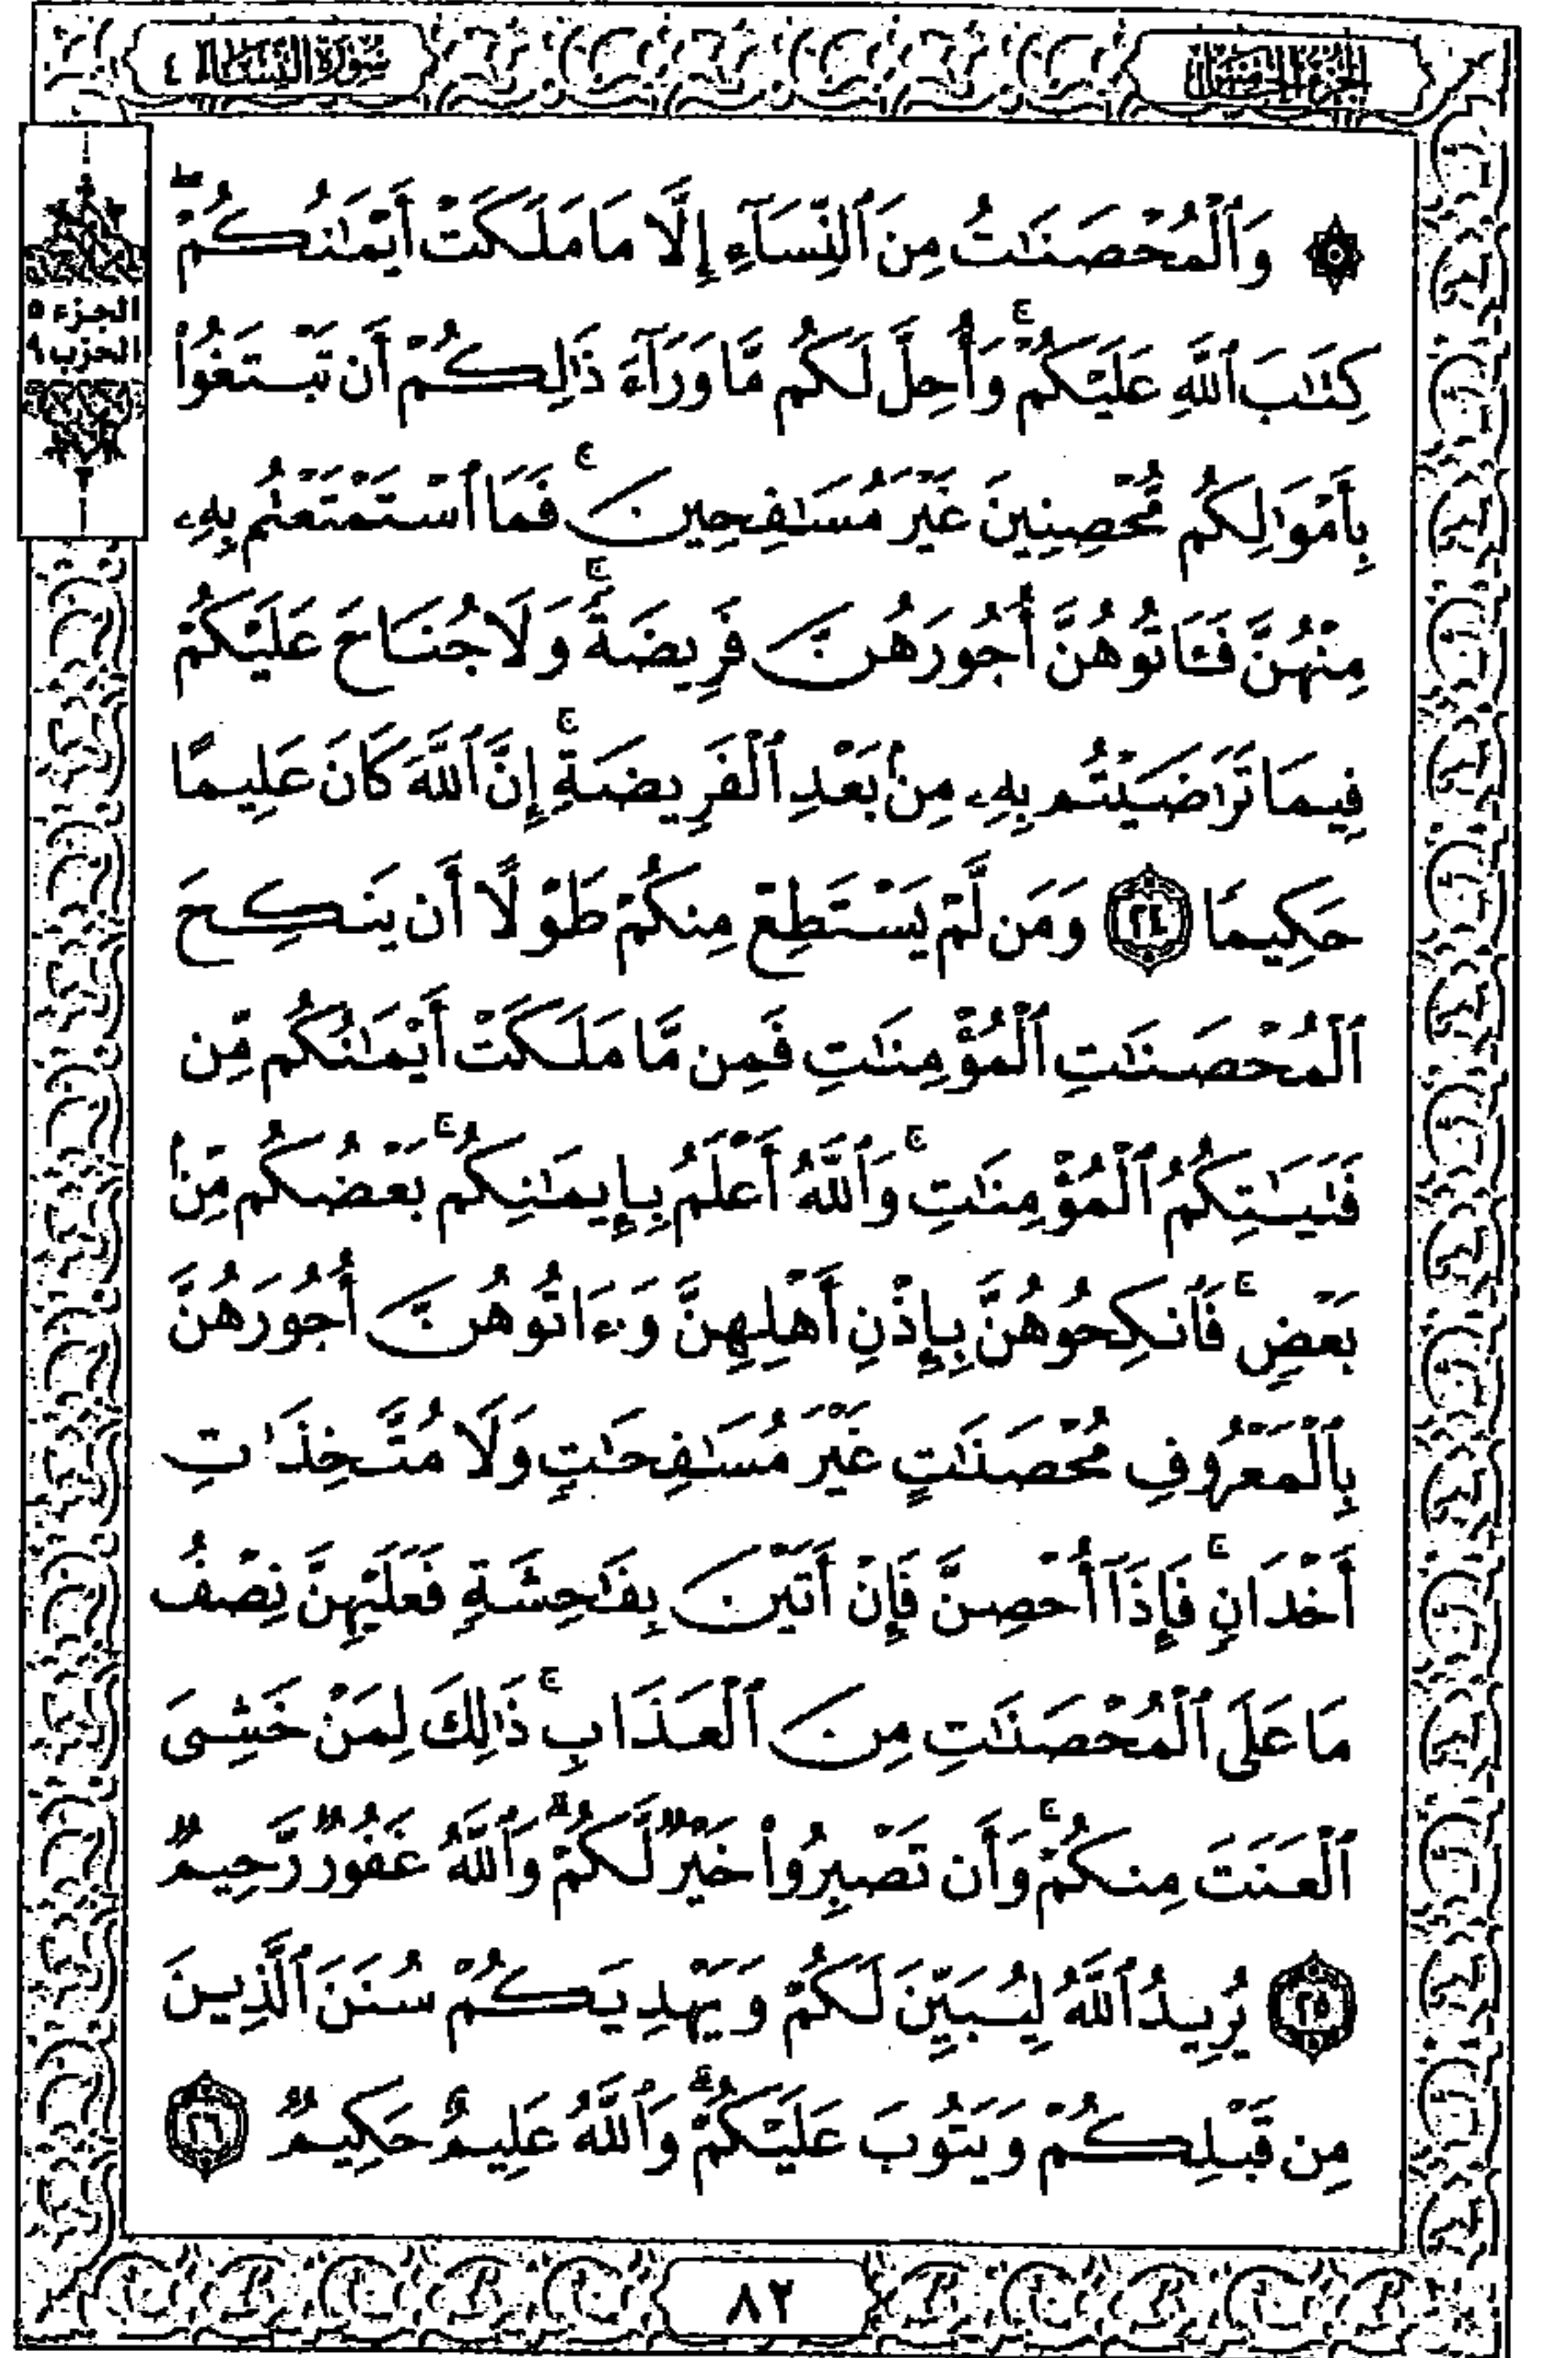 الجزء الخامس
سورة النساء ٤
الجزء ٥
الحزب ٩
۞ وَٱلْمُحْصَنَـٰتُ مِنَ ٱلنِّسَآءِ إِلَّا مَا مَلَكَتْ أَيْمَـٰنُكُمْ ۖ
كِتَـٰبَ ٱللَّهِ عَلَيْكُمْ ۚ وَأُحِلَّ لَكُم مَّا وَرَآءَ ذَٰلِكُمْ أَن تَبْتَغُوا۟
بِأَمْوَٰلِكُم مُّحْصِنِينَ غَيْرَ مُسَـٰفِحِينَ ۚ فَمَا ٱسْتَمْتَعْتُم بِهِۦ
مِنْهُنَّ فَـَٔاتُوهُنَّ أُجُورَهُنَّ فَرِيضَةً ۚ وَلَا جُنَاحَ عَلَيْكُمْ
فِيمَا تَرَٰضَيْتُم بِهِۦ مِنۢ بَعْدِ ٱلْفَرِيضَةِ ۚ إِنَّ ٱللَّهَ كَانَ عَلِيمًا
حَكِيمًا ٢٤ وَمَن لَّمْ يَسْتَطِعْ مِنكُمْ طَوْلًا أَن يَنكِحَ
ٱلْمُحْصَنَـٰتِ ٱلْمُؤْمِنَـٰتِ فَمِن مَّا مَلَكَتْ أَيْمَـٰنُكُم مِّن
فَتَيَـٰتِكُمُ ٱلْمُؤْمِنَـٰتِ ۚ وَٱللَّهُ أَعْلَمُ بِإِيمَـٰنِكُم ۚ بَعْضُكُم مِّنۢ
بَعْضٍ ۚ فَٱنكِحُوهُنَّ بِإِذْنِ أَهْلِهِنَّ وَءَاتُوهُنَّ أُجُورَهُنَّ
بِٱلْمَعْرُوفِ مُحْصَنَـٰتٍ غَيْرَ مُسَـٰفِحَـٰتٍ وَلَا مُتَّخِذَٰتِ
أَخْدَانٍ ۚ فَإِذَآ أُحْصِنَّ فَإِنْ أَتَيْنَ بِفَـٰحِشَةٍ فَعَلَيْهِنَّ نِصْفُ
مَا عَلَى ٱلْمُحْصَنَـٰتِ مِنَ ٱلْعَذَابِ ۚ ذَٰلِكَ لِمَنْ خَشِىَ
ٱلْعَنَتَ مِنكُمْ ۚ وَأَن تَصْبِرُوا۟ خَيْرٌ لَّكُمْ ۗ وَٱللَّهُ غَفُورٌ رَّحِيمٌ
٢٥ يُرِيدُ ٱللَّهُ لِيُبَيِّنَ لَكُمْ وَيَهْدِيَكُمْ سُنَنَ ٱلَّذِينَ
مِن قَبْلِكُمْ وَيَتُوبَ عَلَيْكُمْ ۗ وَٱللَّهُ عَلِيمٌ حَكِيمٌ ٢٦
٨٢